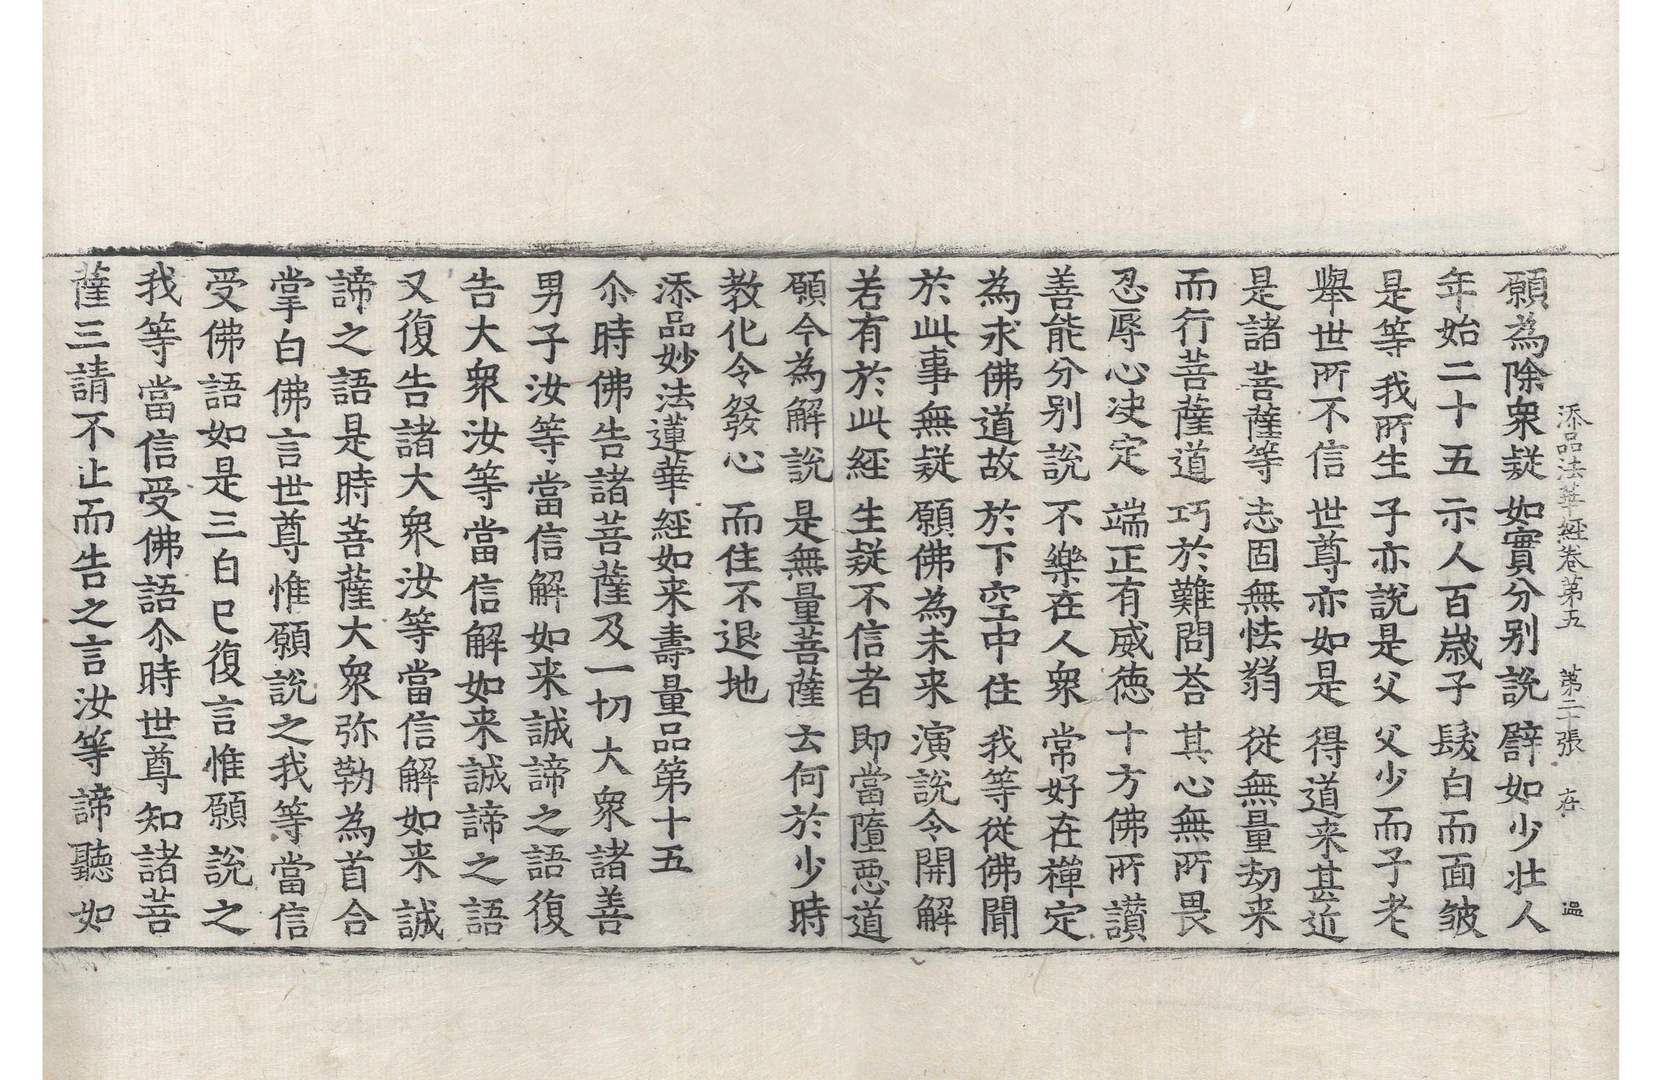 添品法華經卷第五 第二十張 在 温
願為除衆疑 如實分别說 譬如少壯人
年始二十五 示人百歲子 髮白而面皺
是等我所生 子亦說是父 父少而子老
舉世所不信 世尊亦如是 得道来甚近
是諸菩薩等 志固無怯弱 從無量劫来
而行菩薩道 巧於難問荅 其心無所畏
忍辱心決定 端正有威德 十方佛所讃
善能分别說 不樂在人衆 常好在禪定
為求佛道故 於下空中住 我等從佛聞
於此事無疑 願佛為未来 演說令開解
若有於此經 生疑不信者 即當墮惡道
願今為解說 是無量菩薩 云何於少時
教化令發心 而住不退地
添品妙法蓮華經如来壽量品第十五
尒時佛告諸菩薩及一切大衆諸善
男子汝等當信解如来誠諦之語復
告大衆汝等當信解如来誠諦之語
又復告諸大衆汝等當信解如来誠
諦之語是時菩薩大衆弥勒為首合
掌白佛言世尊惟願說之我等當信
受佛語如是三白已復言惟願說之
我等當信受佛語尒時世尊知諸菩
薩三請不止而告之言汝等諦聽如